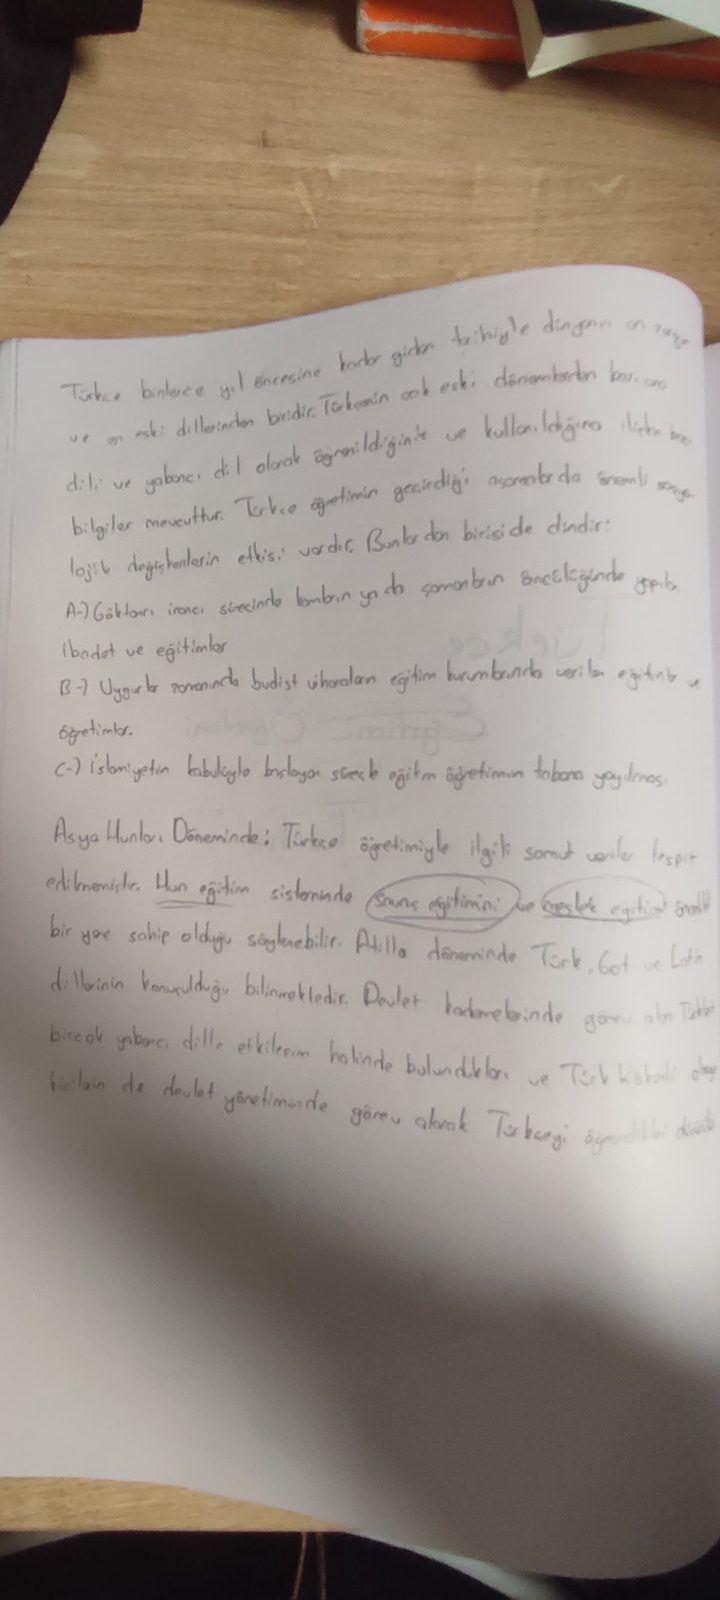 Türkçe binlerce yıl öncesine kadar giden tarihiyle dünyanın en zengin
ve en eski dillerinden biridir. Türkçenin çok eski dönemlerden beri ana
dili ve yabancı dil olarak öğrenildiğine ve kullanıldığına ilişkin bazı
bilgiler mevcuttur. Türkçe öğretimin geçirdiği aşamalarda önemli sosyo
lojik değişkenlerin etkisi vardır. Bunlardan birisi de dindir:
A-) Göktanrı inancı sürecinde kamların ya da şamanların öncülüğünde yapılan
ibadet ve eğitimler
B-) Uygurlar zamanında budist vihoraları eğitim kurumlarında verilen eğitim ve
öğretimler.
C-) İslamiyetin kabulüyle başlayan süreçte eğitim öğretimin tabana yayılması.
Asya Hunları Döneminde: Türkçe öğretimiyle ilgili somut veriler tespit
edilmemiştir. Hun eğitim sisteminde savaş eğitimini ve meslek eğitimi önemli
bir yere sahip olduğu söylenebilir. Atilla döneminde Türk, Got ve Latin
dillerinin konuşulduğu bilinmektedir. Devlet kademelerinde görev alan Türklerin
birçok yabancı dille etkileşim halinde bulundukları ve Türk kökenli
de devlet yönetiminde görev alarak Türkçeyi öğrendikleri